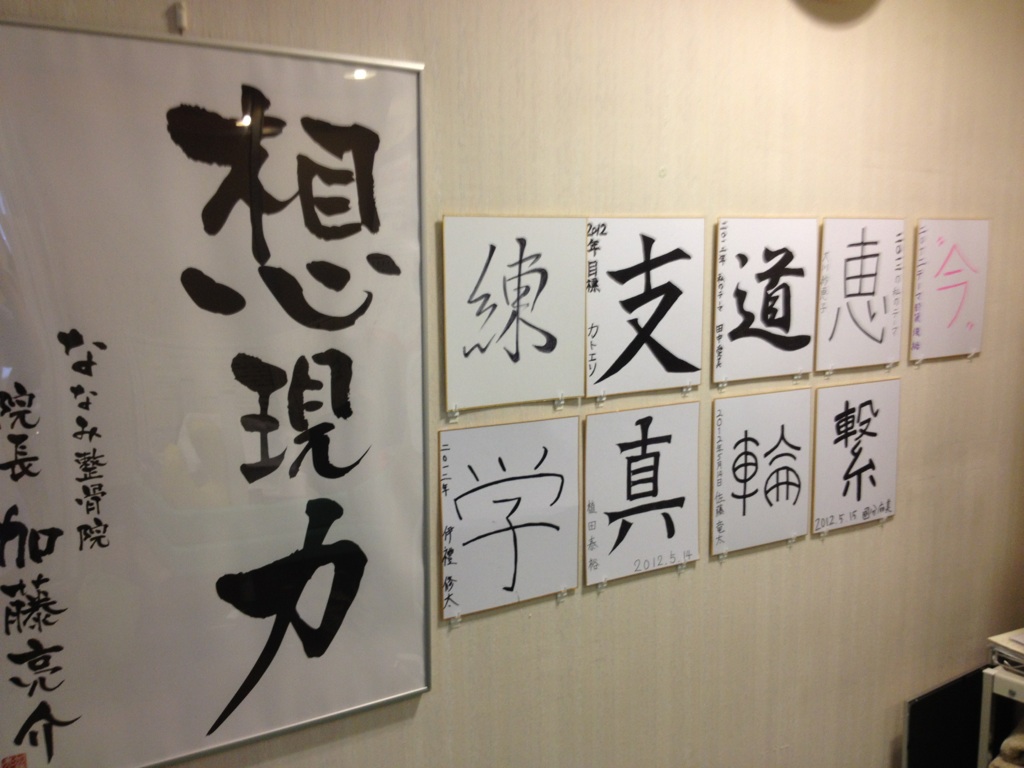 想現力
ななみ整骨院
院長 加藤亮介
練
2012年目標
支
カトエリ
道
恵
今
二〇一二年
学
伊禮 修太
真
植田泰裕
2012.5.14
2012年5月14日 佐藤竜太
輪
繋
2012.5.15